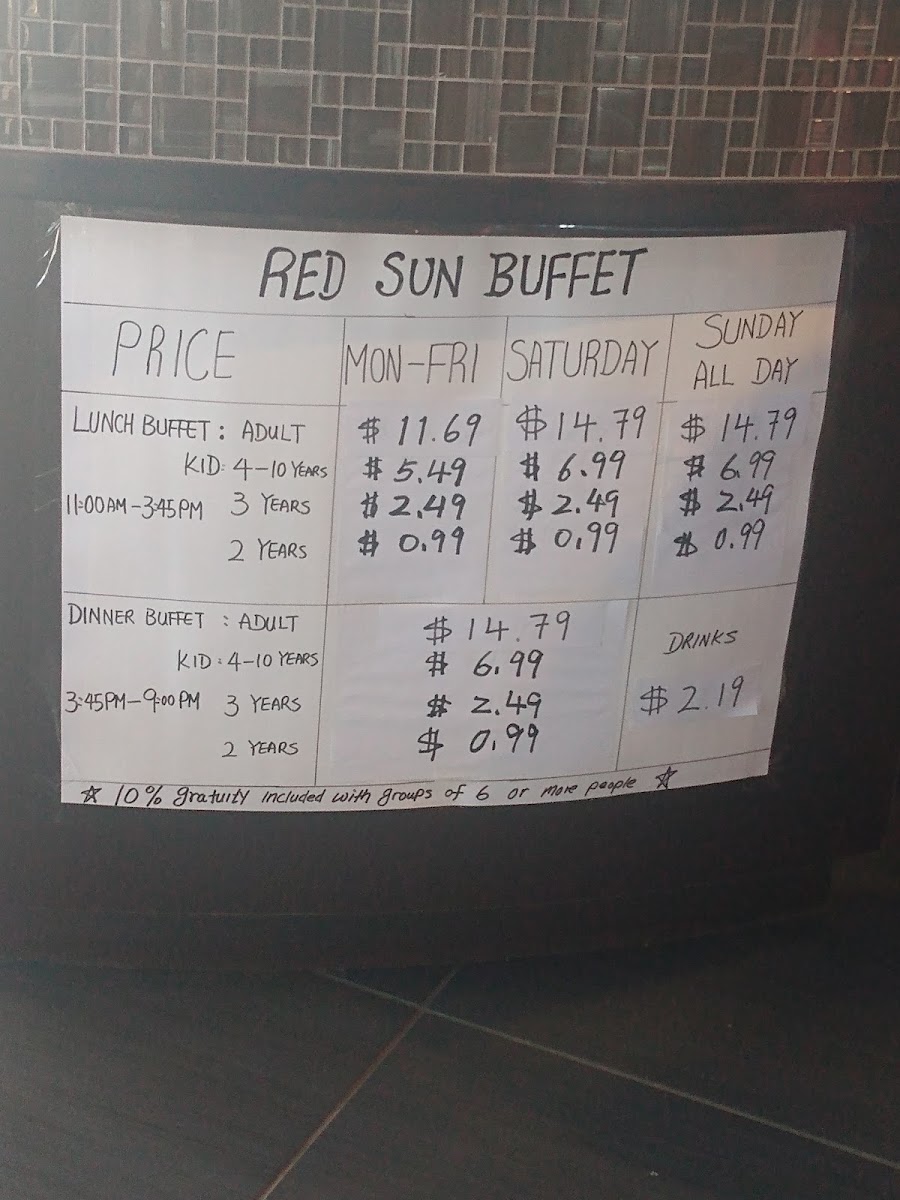 RED SUN BUFFET
PRICE MON-FRI SATURDAY SUNDAY ALL DAY
LUNCH BUFFET: ADULT $11.69 $14.79 $14.79
KID: 4-10 YEARS $5.49 $6.99 $6.99
11:00AM-3:45PM 3 YEARS $2.49 $2.49 $2.49
2 YEARS $0.99 $0.99 $0.99
DINNER BUFFET: ADULT $14.79 DRINKS
KID: 4-10 YEARS $6.99
3:45PM-9:00PM 3 YEARS $2.49 $2.19
2 YEARS $0.99
☆ 10% gratuity included with groups of 6 or more people ☆